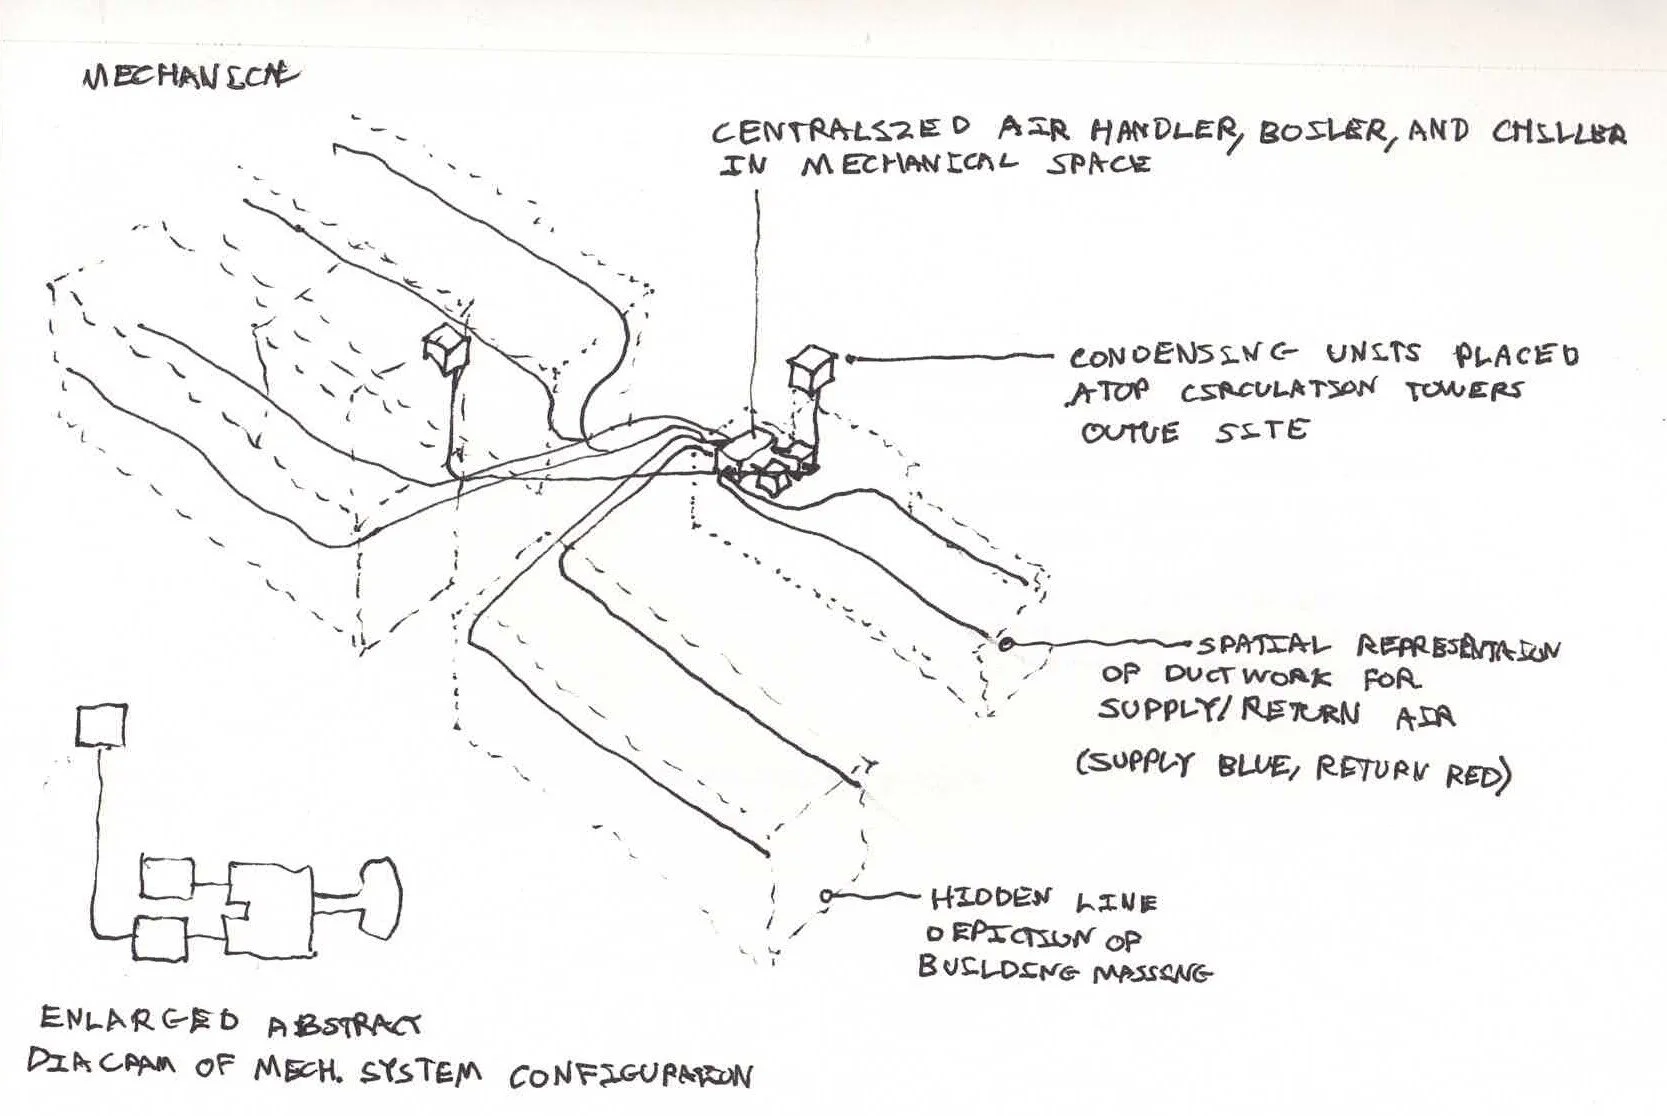 MECHANICAL
CENTRALIZED AIR HANDLER, BOILER, AND CHILLER
IN MECHANICAL SPACE
CONDENSING UNITS PLACED
ATOP CIRCULATION TOWERS
SITE
SPATIAL REPRESENTAION
OF DUCTWORK FOR
SUPPLY/RETURN AIR
(SUPPLY BLUE, RETURN RED)
HIDDEN LINE
DEPICTION OF
BUILDING MASSING
ENLARGED ABSTRACT
DIAGRAM OF MECH. SYSTEM CONFIGURATION